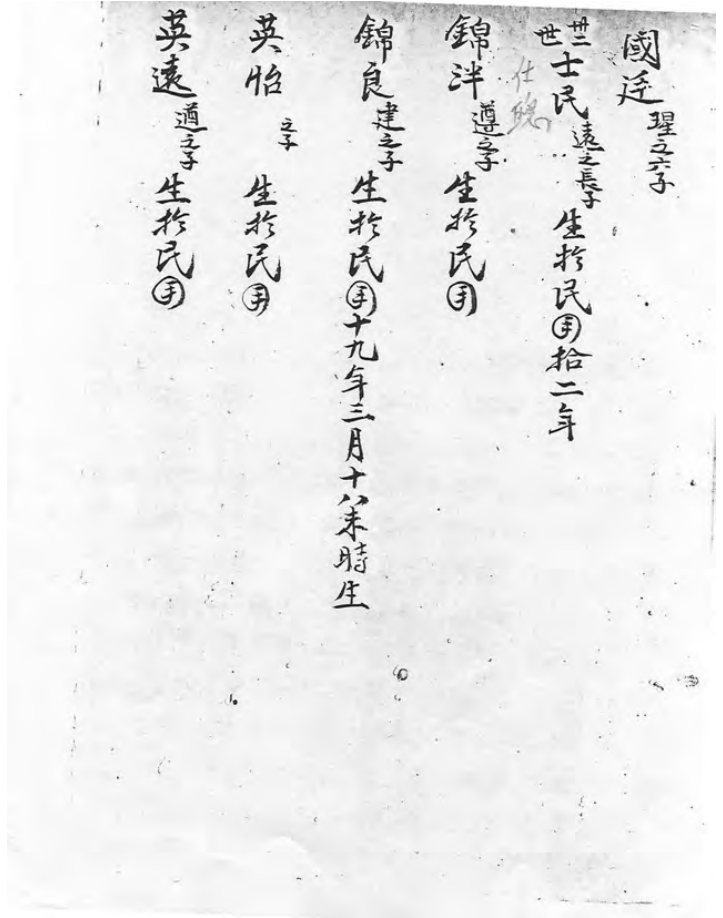 國廷 瑆之六子
卅二世 士民 遠之長子 生扵民国拾二年
仕
錦泮 遵之子 生扵民国
錦良 建之子 生扵民国十九年三月十八未時生
英怡 之子 生扵民国
英遠 遵之子 生扵民国